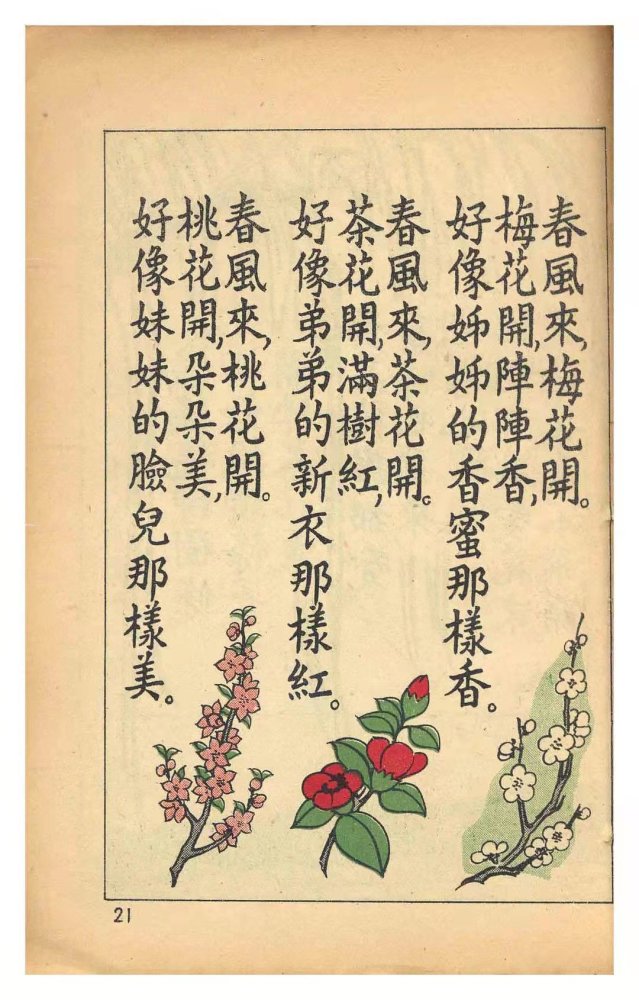 春風來,梅花開。
梅花開,陣陣香,
好像姊姊的香蜜那樣香。
春風來,茶花開。
茶花開,滿樹紅,
好像弟弟的新衣那樣紅。
春風來,桃花開。
桃花開,朵朵美,
好像妹妹的臉兒那樣美。
21